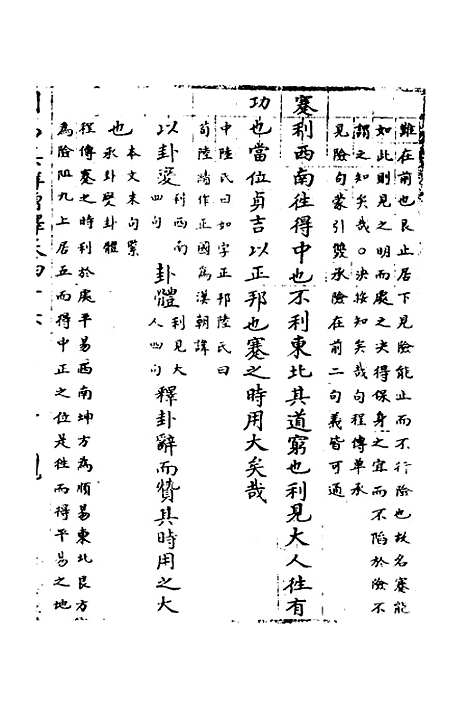 難在前也艮止居下見險能止而不行險也故名蹇能
如此則見之明而處之決得保身之宜而不陷於險不
謂之知矣哉○決按知矣哉句程傳單承
見險句蒙引毀承險在前二句義皆可通
蹇利西南往得中也不利東北其道窮也利見大人往有
功也當位貞吉以正邦也蹇之時用大矣哉
中陸氏曰如字正邦陸氏曰
荀陸績作正國為漢朝諱
以卦變利西南四句卦體利見大人四句釋卦辭而贊其時用之大
也本文末句蒙承卦變卦體
程傳蹇之時利於處平易西南坤方為順易東北艮方
為險阻九上居五而得中正之位是往而得平易之地